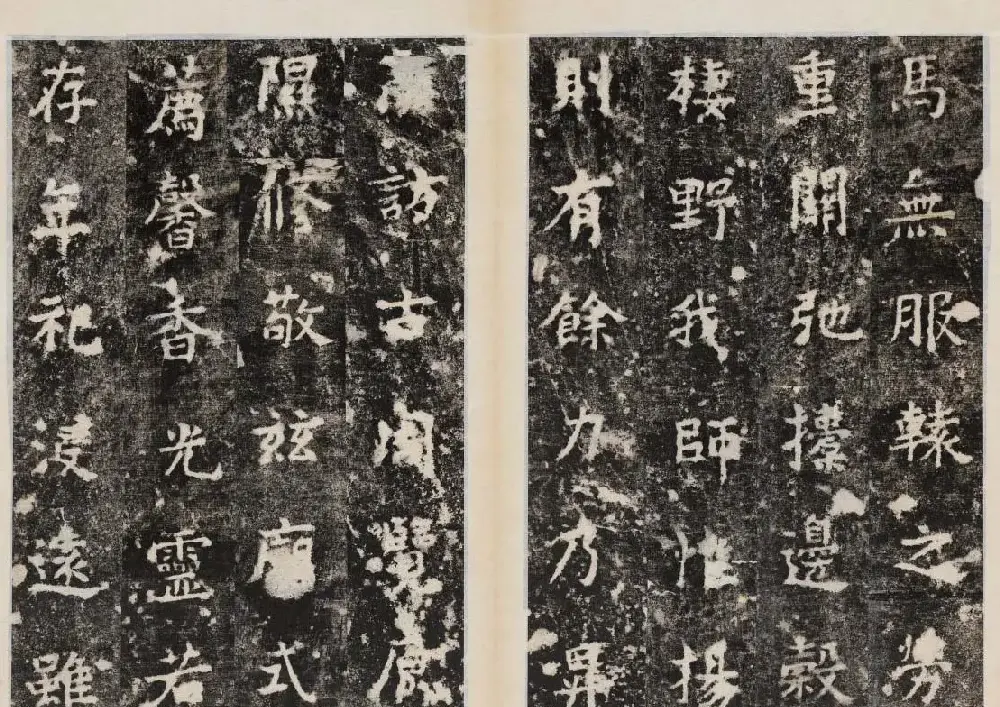 馬無服轅之勞
重關弛邊穀
棲野我師惟揚
則有餘力乃
訪古周覽原
隰修敬玆廟式
薦馨香光靈若
存年祀浸遠雖